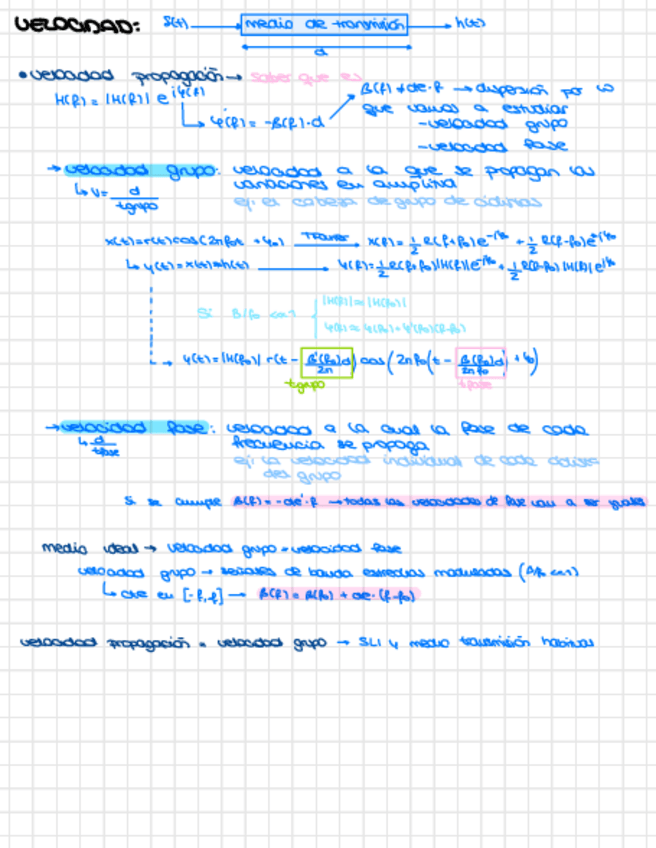 VELOCIDAD: S(t) → medio de transmisión → h(t)
d
• velocidad propagación → saber que es
H(f) = |H(f)| e^{iφ(f)}
φ(f) = -β(f)·d
β(f) ≠ cte·f → dispersión por lo
que vamos a estudiar
- velocidad grupo
- velocidad fase
→ velocidad grupo: velocidad a la que se propagan las
variaciones en amplitud
↳ v = d / tgrupo
ej: la cabeza de grupo de ciclistas
x(t) = r(t) cos(2πf₀t + φ₀) → x(f) = ½ R(f+f₀)e^{-jφ₀} + ½ R(f-f₀)e^{jφ₀}
↳ y(t) = x(t) * h(t) → Y(f) = ½ R(f+f₀)|H(f)|e^{-jφ₀} + ½ R(f-f₀)|H(f)|e^{jφ₀}
Si B/f₀ <<1 |H(f)| ≈ |H(f₀)|
φ(f) ≈ φ(f₀) + φ'(f₀)(f-f₀)
→ y(t) = |H(f₀)| r(t - β'(f₀)d / 2π) cos(2πf₀(t - β(f₀)d / 2πf₀) + φ₀)
tgrupo tfase
→ velocidad fase: velocidad a la cual la fase de cada
frecuencia se propaga
↳ d / tfase
ej: la velocidad individual de cada ciclista
del grupo
Si se cumple β(f) = -cte·f → todas las velocidades de fase van a ser iguales
medio ideal → velocidad grupo = velocidad fase
velocidad grupo → señales de banda estrecha moduladas (B/f₀ <<1)
↳ cte en [-f, f] → β(f) = β(f₀) + cte·(f-f₀)
velocidad propagación = velocidad grupo → SLI y medio transmisión habitual